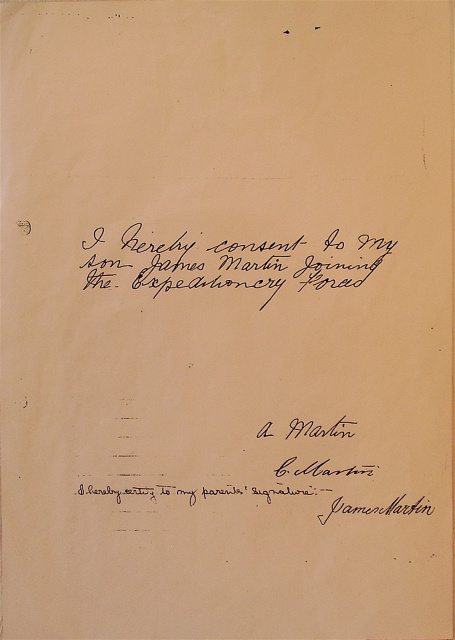 I hereby consent to my
son James Martin Joining
the Expeditioncry Forces
A Martin
C. Martin
I hereby certify to my parents' signature.—
James Martin